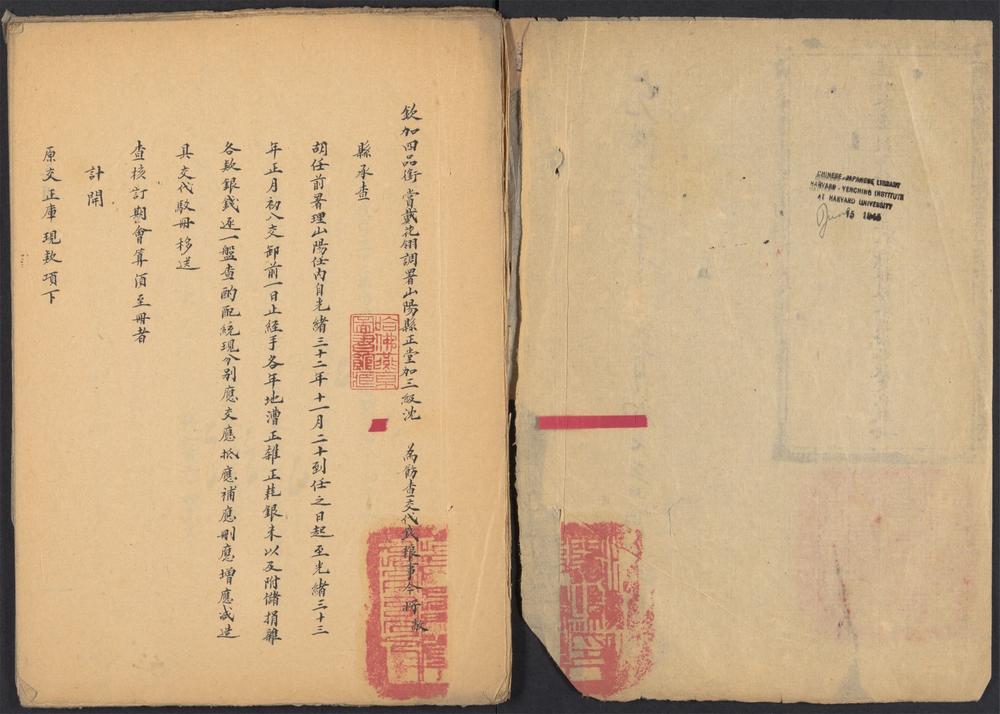 CHINESE-JAPANESE LIBRARY
HARVARD-YENCHING INSTITUTE
AT HARVARD UNIVERSITY
Jun 15 1948
欽加四品銜賞戴花翎調署山陽縣正堂加三級沈 為飭查交代錢糧事今將敝
縣承查
胡任前署理山陽任內自光緒三十二年十一月二十到任之日起至光緒三十三
年正月初八交卸前一日止經手各年地漕正雜正耗銀米以及附儲捐雜
各款銀錢逐一盤查酌配統現分別應交應抵應補應刪應增應減造
具交代駁冊移送
查核訂期會算須至冊者
計開
原交正庫現款項下
哈佛燕京
圖書館藏